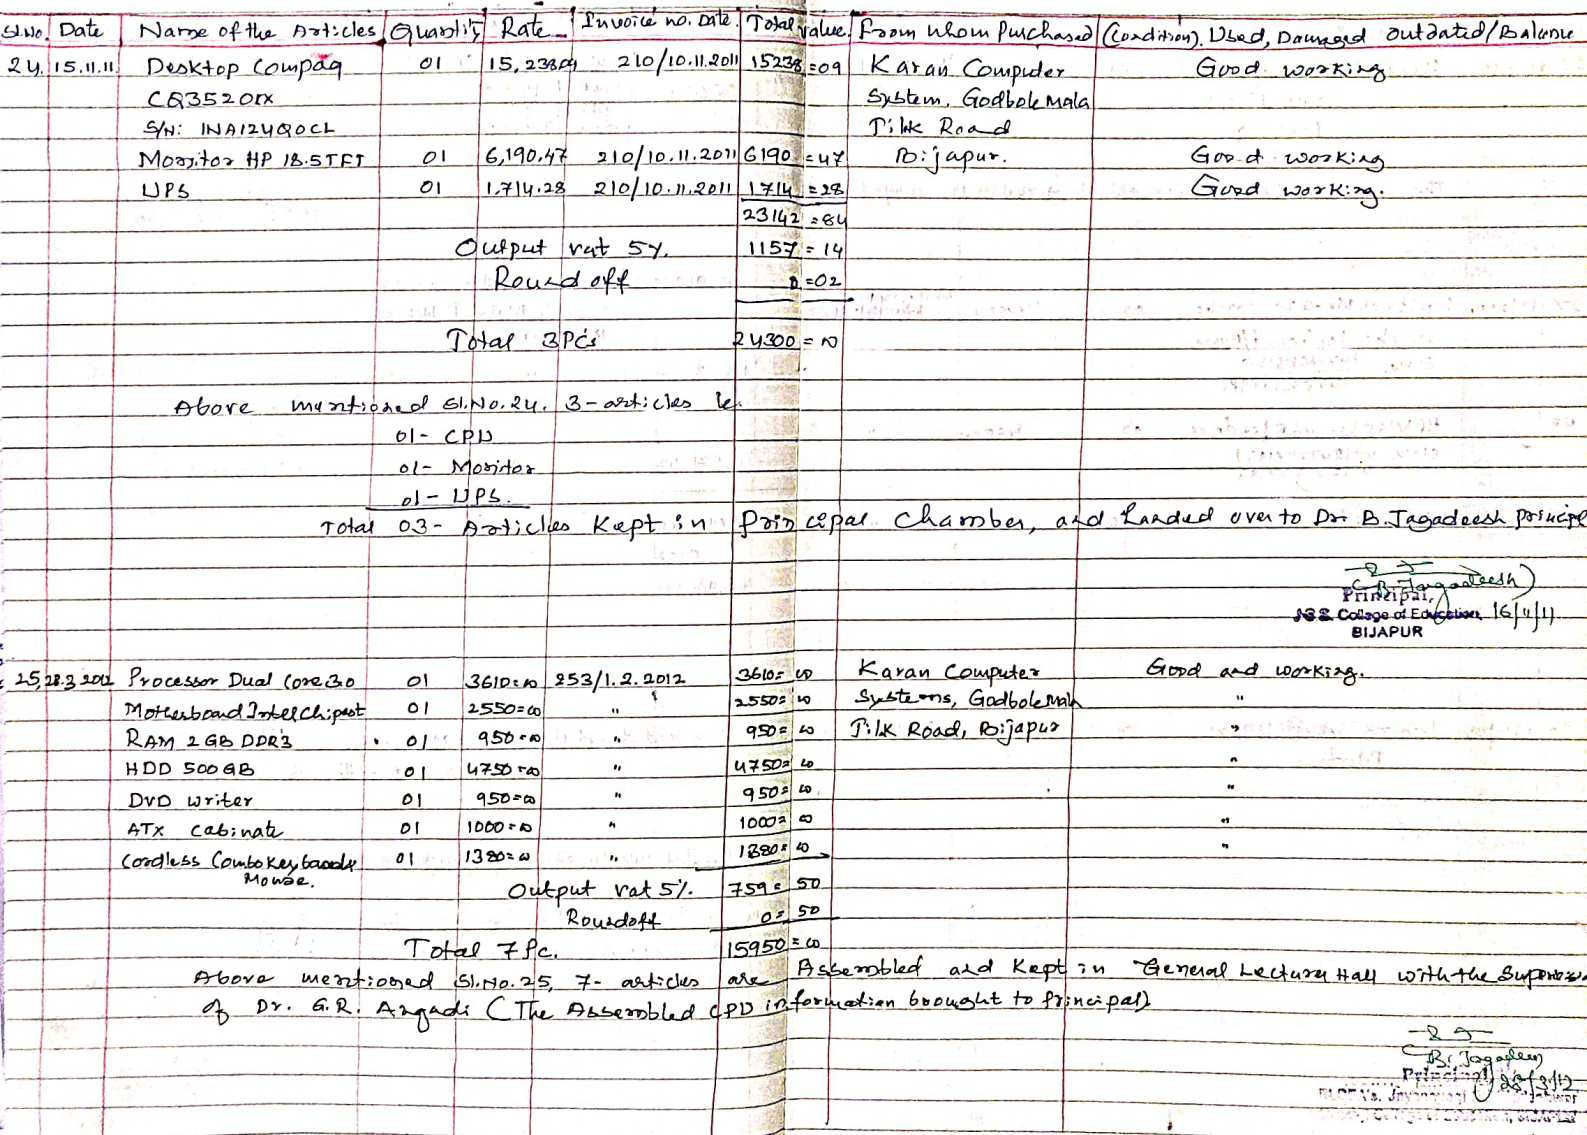 Sl.No. Date Name of the Articles Quantity Rate Invoice no. Date. Total value From whom Purchased (Condition). Used, Damaged outdated/Balance
24. 15.11.11. Desktop Compaq 01 15,238.09 210/10.11.2011 15238=09 Karan Computer Good working
CQ3520IX System, Godbole Mala
S/N: INA124Q0CL Tilk Road
Monitor HP 18.5 TFT 01 6,190.47 210/10.11.2011 6190=47 Bijapur. Good working
UPS 01 1.714.28 210/10.11.2011 1714=28 Good working.
23142=84
Output vat 5%. 1157=14
Round off 0=02
Total 3 PC's 24300=00
Above mentioned Sl.No.24. 3-articles ie.
01- CPU
01- Monitor
01- UPS.
Total 03- Articles Kept in Principal Chamber, and handed over to Dr B.Jagadeesh principal
(B.Jagadeesh)
Principal,
College of Education, 16/11/11
BIJAPUR
25, 28.3.2012 Processor Dual Core 3.0 01 3610=00 253/1.2.2012 3610=00 Karan Computer Good and working.
Motherboard Intel Chipset 01 2550=00 " 2550=00 Systems, Godbole Mala "
RAM 2GB DDR3 01 950=00 " 950=00 Tilk Road, Bijapur "
HDD 500GB 01 4750=00 " 4750=00 "
DVD writer 01 950=00 " 950=00 "
ATX Cabinate 01 1000=00 " 1000=00 "
Cordless Combo Keyboard & 01 1380=00 " 1380=00 "
Mouse.
Output vat 5%. 759=50
Roundoff 0=50
Total 7 Pc. 15950=00
Above mentioned Sl.No.25, 7- articles are Assembled and Kept in General Lecture Hall with the
of Dr. G.R. Angadi (The Assembled CPU information brought to Principal)
B. Jagadeesh
Principal 28/3/12